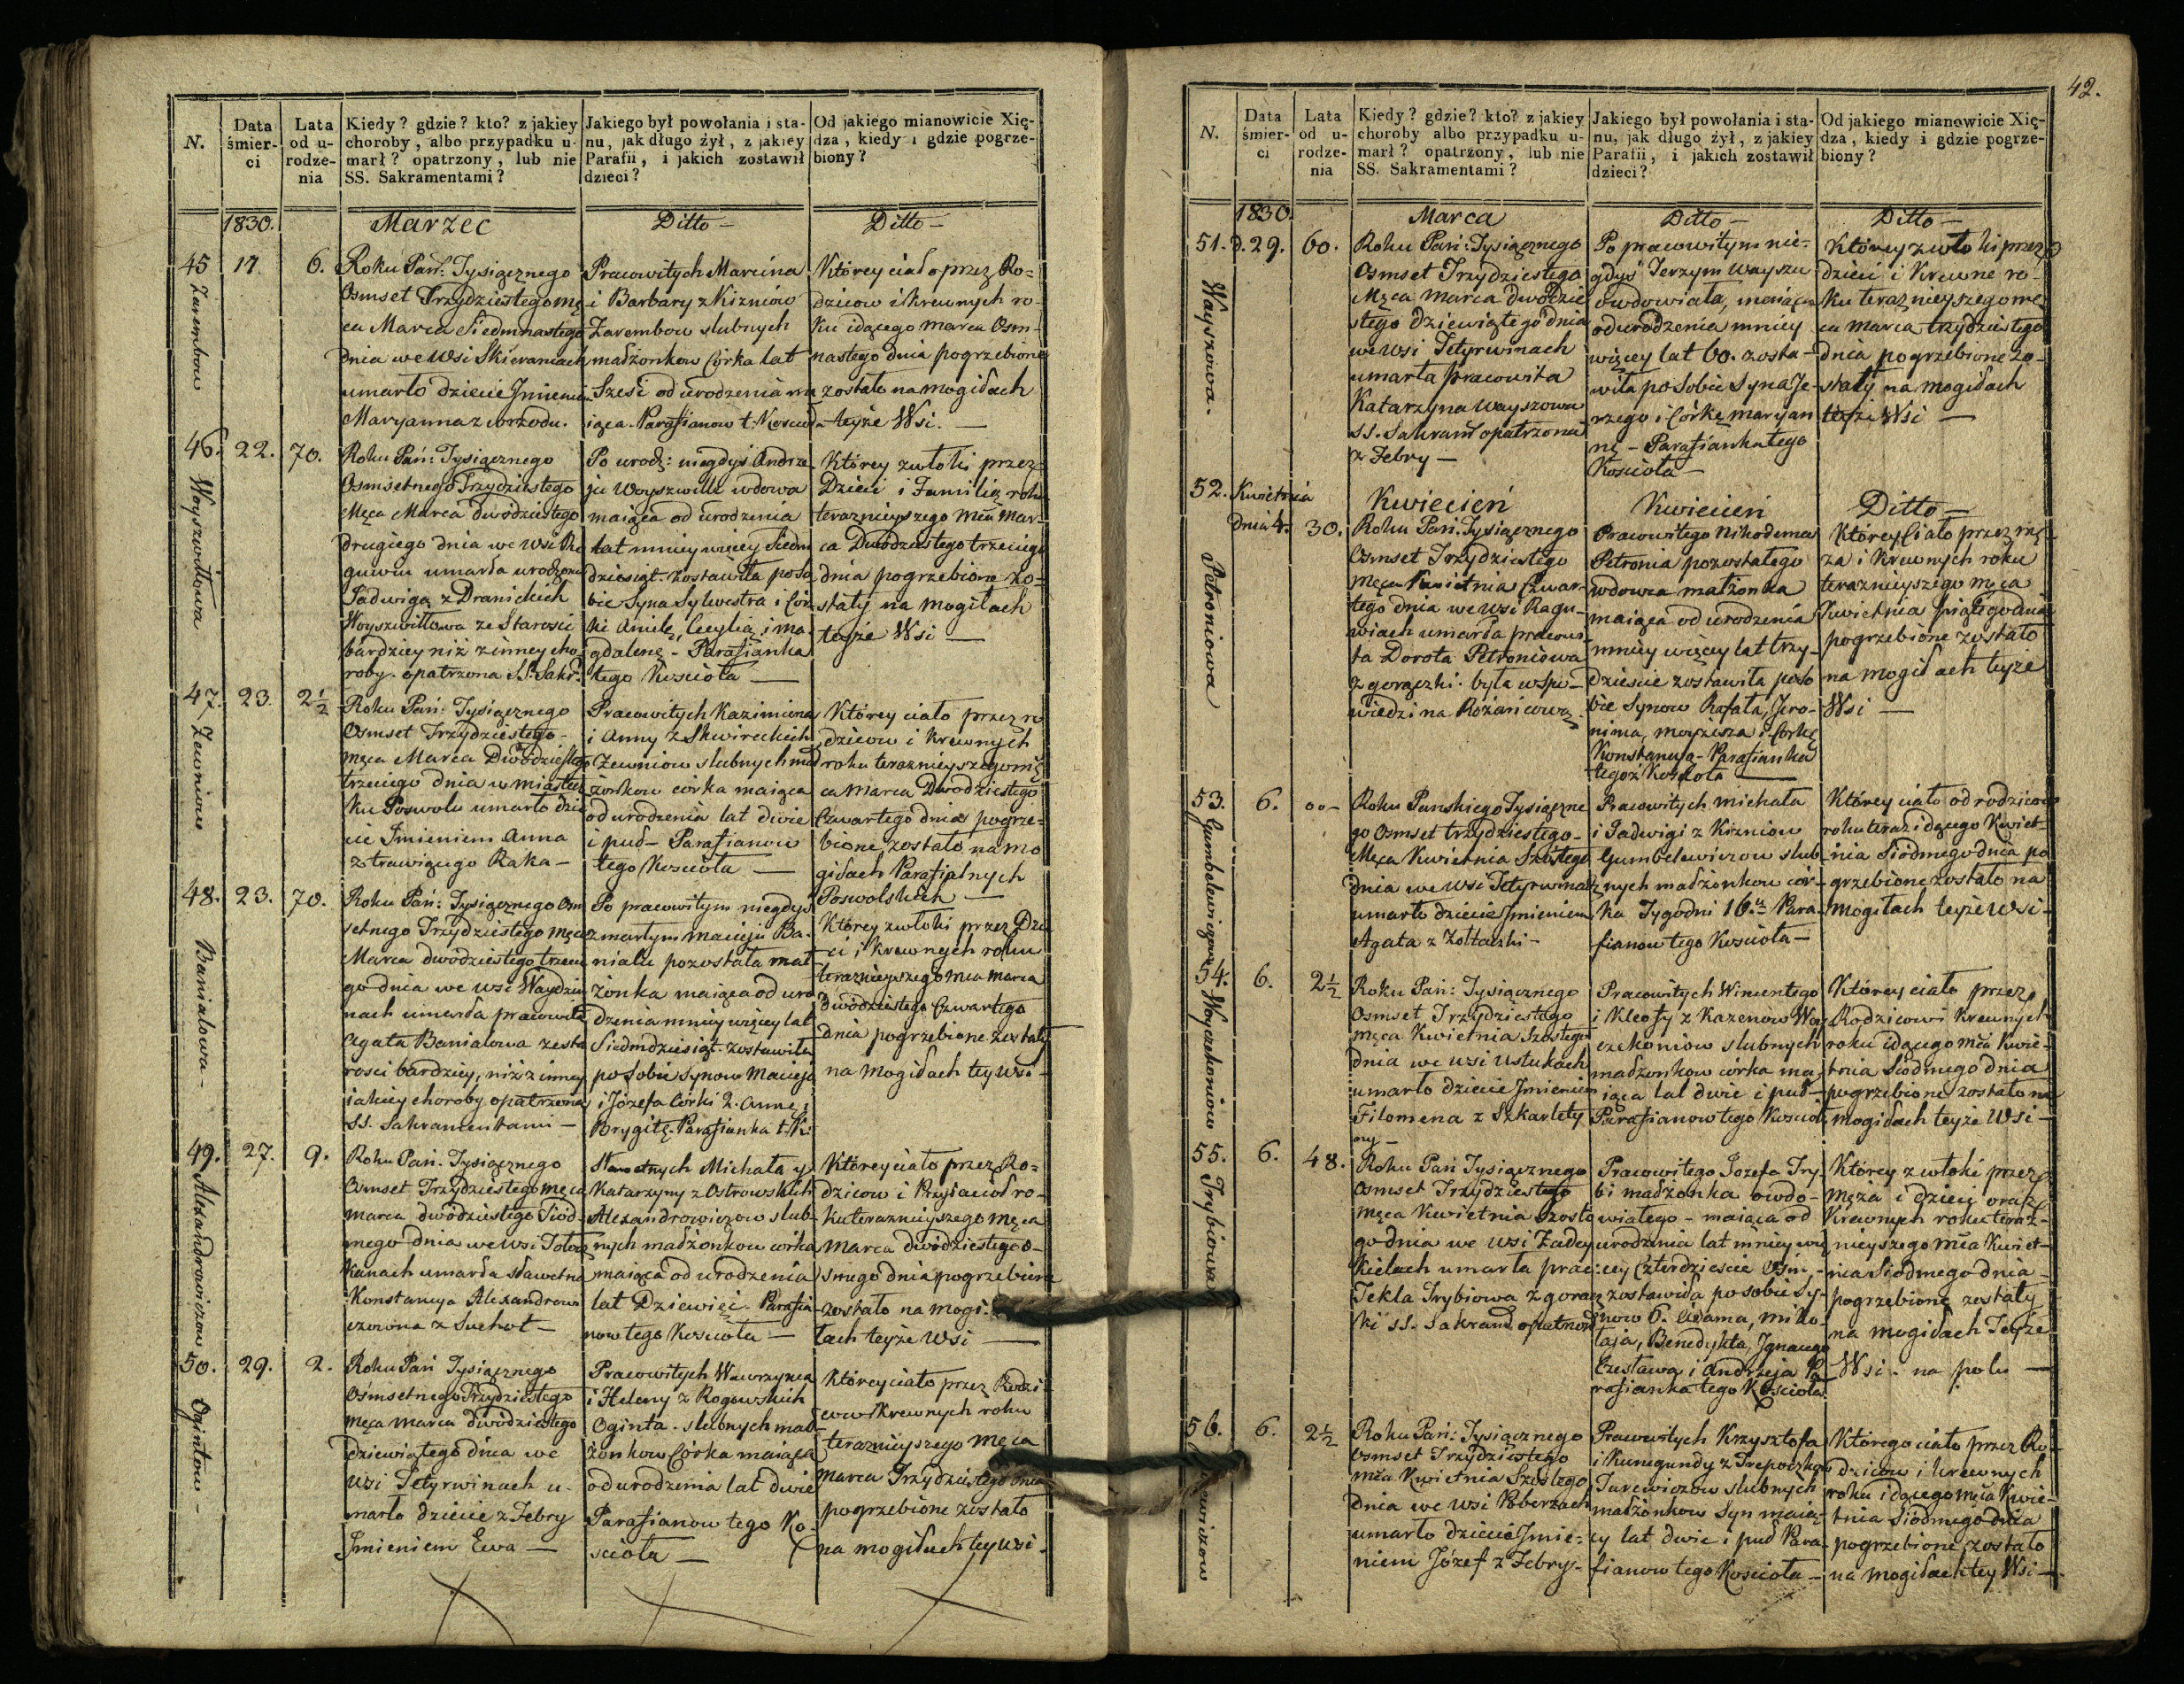 N.
Data śmier-
ci
Lata
od u-
rodze-
nia
Kiedy? gdzie? kto? z jakiey
choroby, albo przypadku u-
marł? opatrzony, lub nie
SS. Sakramentami?
Jakiego był powołania i sta-
nu, jak długo żył, z jakiey
Parafii, i jakich zostawił
dzieci?
Od jakiego mianowicie Xię-
dza, kiedy i gdzie pogrze-
biony?
1830.
Marzec
Ditto —
Ditto —
45
17
6.
Zarembow
Roku Pań: Tysiącznego
Osmset Trzydziestego mę
ca Marca Siedmnastego
dnia we Wsi Skieraniach
umarło dziecie Jmieniem
Maryanna z wrzodu.
Pracowitych Marcina
i Barbary z Kizniow
Zarembow slubnych
małżonkow Córka lat
Szesć od urodzenia ma
iąca. Parafianow t. Koscioła
Którey ciało przez Ro=
dzicow i krewnych ro-
ku idącego marca Osm-
nastego dnia pogrzebione
zostało na mogiłach
teyże Wsi. —
46.
22.
70.
Woyszwiłłowa
Roku Pań: Tysiącznego
Osmsetnego Trzydziestego
Męca Marca dwódziestego
drugiego dnia we Wsi Ra
guwiu umarła urodzona
Jadwiga z Dranickich
Woyszwiłłowa ze Starosci
bardziey niż z inney cho
roby. opatrzona SS. Sakr.
Po urodz: niegdyś Andrze
ju Woyszwille wdowa
maiąca od urodzenia
lat mniey więcey Siedm
dziesiąt. zostawiła poso
bie Syna Sylwestra i Cór
ki Anielę, Cecylią i Ma
gdalenę - Parafianka
tego Koscioła —
Którey zwłoki przez
Dzieci i Familią roku
teraznieyszego Mca Mar-
ca Dwódziestego trzeciego
dnia pogrzebione zo-
stały na mogiłach
teyże Wsi —
47.
23.
2½
Zewniow
Roku Pań: Tysiącznego
Osmset Trzydziestego -
męca Marca Dwódziestego
trzeciego dnia w miastecz
ku Poswolu umarło dzie
cie Jmieniem Anna
z trawiącego Raka —
Pracowitych Kazimierza
i Anny z Skwireckich
Zewniow slubnych mał
żonkow córka maiąca
od urodzenia lat dwie
i puł - Parafianow
tego Koscioła —
Którey ciało przez ro
dzicow i krewnych
roku teraznieyszego mię
ca Marca Dwódziestego
Czwartego dnia pogrze-
bione zostało na mo
giłach Parafialnych
Poswolskich —
48.
23.
70.
Banialowa -
Roku Pań: Tysiącznego Osm
setnego Trzydziestego męca
Marca dwódziestego trzecie
go dnia we wsi Waydzia
nach umarła pracowita
Agata Banialowa ze sta
rosci bardziey, niż z inney
iakiey choroby opatrzona
SS. Sakramentami —
Po pracowitym niegdyś
zmarłym Macieju Ba-
nialu pozostała mał
żonka maiąca od uro
dzenia mniey więcey lat
Siedmdziesiąt. zostawiła
po sobie synow Macieja
i Józefa Córki 2. Annę i
Brygitę. Parafianka t. K:
Którey zwłoki przez Dzie
ci i krewnych roku
teraznieyszego mca marca
Dwódziestego Czwartego
dnia pogrzebione zostały
na Mogiłach tey wsi -
49.
27.
9.
Alexandrowiczow
Roku Pań. Tysiącznego
Osmset Trzydziestego męca
marca dwódziestego Siód-
mego dnia we wsi
kanach umarła sławetna
Konstancya Alexandrowi
czowna z Suchot —
Sławetnych Michała y
Katarzyny z Ostrowskich
Alexandrowiczow slub-
nych małżonkow córka
maiąca od urodzenia
lat Dziewięć. Parafia
now tego Koscioła —
Którey ciało przez Ro=
dzicow i Przyjacioł ro-
ku teraznieyszego męca
Marca dwódziestego ó-
smego dnia pogrzebione
zostało na mogi-
łach teyże wsi —
50.
29.
2.
Ogintow -
Roku Pań Tysiącznego
Osmsetnego Trzydziestego
męca marca dwódziestego
dziewiątego dnia we
wsi Tetyrwinach u-
marło dziecie z Febry
Jmieniem Ewa —
Pracowitych Wawrzynca
i Heleny z Rogowskich
Oginta. slubnych mał-
żonkow Córka maiąca
od urodzenia lat dwie
Parafianow tego Ko-
scioła —
Którey ciało przez Rodzi
cow i krewnych roku
teraznieyszego męca
Marca Trzydziestego dnia
pogrzebione zostało
na mogiłach tey wsi.
42.
N.
Data
śmier-
ci
Lata
od u-
rodze-
nia
Kiedy? gdzie? kto? z jakiey
choroby albo przypadku u-
marł? opatrzony, lub nie
SS. Sakramentami?
Jakiego był powołania i sta-
nu, jak długo żył, z jakiey
Parafii, i jakich zostawił
dzieci?
Od jakiego mianowicie Xię-
dza, kiedy i gdzie pogrze-
biony?
1830.
Marca
Ditto —
Ditto —
51.
d. 29.
60.
Wayszowa.
Roku Pań: Tysiącznego
Osmset Trzydziestego
Męca marca dwódzie
stego dziewiątego dnia
we wsi Tetyrwinach
umarła pracowita
Katarzyna Wayszowa
SS. Sakram opatrzona
z Febry —
Po pracowitym nie-
gdyś Jerzym Wayszu
owdowiała, maiąca
od urodzenia mniey
więcey lat 60. zosta-
wiła po Sobie Syna Je-
rzego i Córkę maryan
nę - Parafianka tego
Koscioła —
Którey zwłoki przez
dzieci i Krewne ro-
ku teraznieyszego mę
ca marca trzydziestego
dnia pogrzebione zo-
stały na mogiłach
teyże Wsi —
52.
Kwietnia
dnia 4.
30.
Petroniowa
Kwiecień
Kwiecień
Ditto —
Roku Pań: Tysiącznego
Osmset Trzydziestego
Męca Kwietnia Czwar-
tego dnia we wsi Ragu-
wiach umarła pracowi-
ta Dorota Petroniowa
z gorączki. była w spo-
wiedzi na Różańcową
Pracowitego Nikodema
Petronia pozostałego
wdowca małżonka
maiąca od urodzenia
mniey więcey lat trzy-
dziescie zostawiła poso
bie Synow Rafała, Jero-
nima, Moyżesza i Córkę
Konstancyą - Parafianka
tegoż Koscioła —
Którey Ciało przez mę-
ża i Krewnych roku
teraznieyszego męca
Kwietnia piątego dnia
pogrzebione zostało
na mogiłach teyże
Wsi —
53.
6.
00-
Gumbelewiczow
Roku Panskiego Tysiączne
go Osmset trzydziestego -
Męca Kwietnia Szóstego
dnia we wsi Tetyrwinach
umarło dziecie Jmieniem
Agata z Zołtaczki -
Pracowitych Michała
i Jadwigi z Kizniow
Gumbelewiczow slub
nych małżonkow cór-
ka Tygodni 16. Para-
fianow tego Koscioła —
Którey ciało od rodzicow
roku teraz idącego Kwiet-
nia Siódmego dnia po
grzebione zostało na
Mogiłach teyże Wsi -
54.
6.
2½
Woyczekoniow
Roku Pań: Tysiącznego
Osmset Trzydziestego
męca Kwietnia Szóstego
dnia we wsi Ustukach
umarło dziecie Jmieniem
Filomena z Szkarlety
ny —
Pracowitych Wincentego
i Kleofy z Kazenow Woy
czekoniow slubnych
małżonkow córka ma-
iąca lat dwie i puł -
Parafianow tego Koscioła
Którey ciało przez
Rodzicow i krewnych
roku idącego mca Kwie-
tnia Siódmego dnia
pogrzebione zostało na
mogiłach teyże Wsi —
55.
6.
48.
Trybiowa
Roku Pań Tysiącznego
Osmset Trzydziestego
męca Kwietnia szóste
go dnia we wsi Zadey
kielach umarła prac:
Tekla Trybiowa z gorącz
ki SS. Sakram opatrzon
Pracowitego Jozefa Try-
bi małżonka owdo-
wiałego - maiąca od
urodzenia lat mniey wię
cey Czterdziescie Osm, -
zostawiła po sobie Sy-
now 6. Adama, Miko-
łaja, Benedykta, Jgnacego
Czesława i Andrzeja Pa
rafianka tego Koscioła.
Którey zwłoki przez
męża i dzieci oraz
Krewnych roku teraz-
nieyszego mca Kwiet-
nia Siódmego dnia
pogrzebione zostały
na mogiłach Teyże
Wsi. na polu —
56.
6.
2½
ewiczow
Roku Pań: Tysiącznego
Osmset Trzydziestego
mca Kwietnia Szóstego
dnia we wsi Poberżach
umarło dziecie Jmie-
niem Józef z Febry -
Pracowitych Krzysztofa
i Kunegundy z Trepoczkow
Jurewiczow slubnych
małżonkow Syn maią-
cy lat dwie i puł Para-
fianow tego Koscioła —
Którego ciało przez Ro-
dzicow i krewnych
roku idącego męca Kwie-
tnia Siódmego dnia
pogrzebione zostało
na mogiłach tey Wsi —